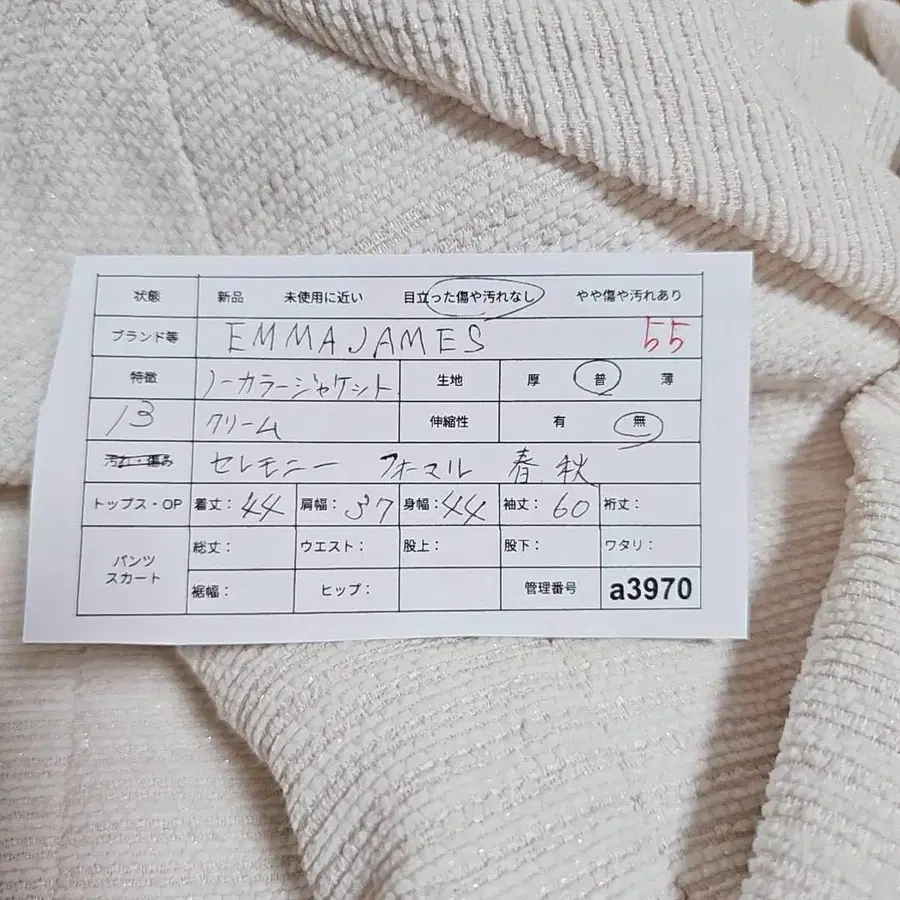 状態 新品 未使用に近い 目立った傷や汚れなし やや傷や汚れあり
ブランド等 EMMAJAMES 55
特徴 ノーカラージャケット 生地 厚 普 薄
13 クリーム 伸縮性 有 無
汚れ・傷み セレモニー フォーマル 春 秋
トップス・OP 着丈:44 肩幅:37 身幅:44 袖丈:60 裄丈:
パンツ スカート 総丈: ウエスト: 股上: 股下: ワタリ:
裾幅: ヒップ: 管理番号 a3970